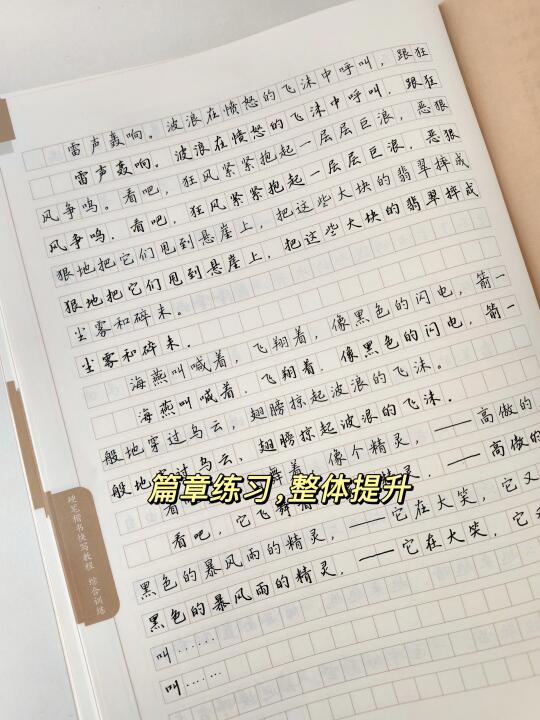 雷声轰响。波浪在愤怒的飞沫中呼叫，跟狂
雷声轰响。波浪在愤怒的飞沫中呼叫，跟狂
风争鸣。看吧，狂风紧紧抱起一层层巨浪，恶狠
风争鸣。看吧，狂风紧紧抱起一层层巨浪，恶狠
狠地把它们甩到悬崖上，把这些大块的翡翠摔成
狠地把它们甩到悬崖上，把这些大块的翡翠摔成
尘雾和碎末。
尘雾和碎末。
海燕叫喊着，飞翔着，像黑色的闪电，箭一
海燕叫喊着，飞翔着，像黑色的闪电，箭一
般地穿过乌云，翅膀掠起波浪的飞沫。
般地穿过乌云，翅膀掠起波浪的飞沫。
看 舞着，像个精灵，——高傲的
篇章练习，整体提升
看吧，它飞舞 精灵，——高傲的
黑色的暴风雨的精灵，——它在大笑，它又
黑色的暴风雨的精灵，——它在大笑，它又
叫……
叫……
硬笔楷书快写教程 综合训练